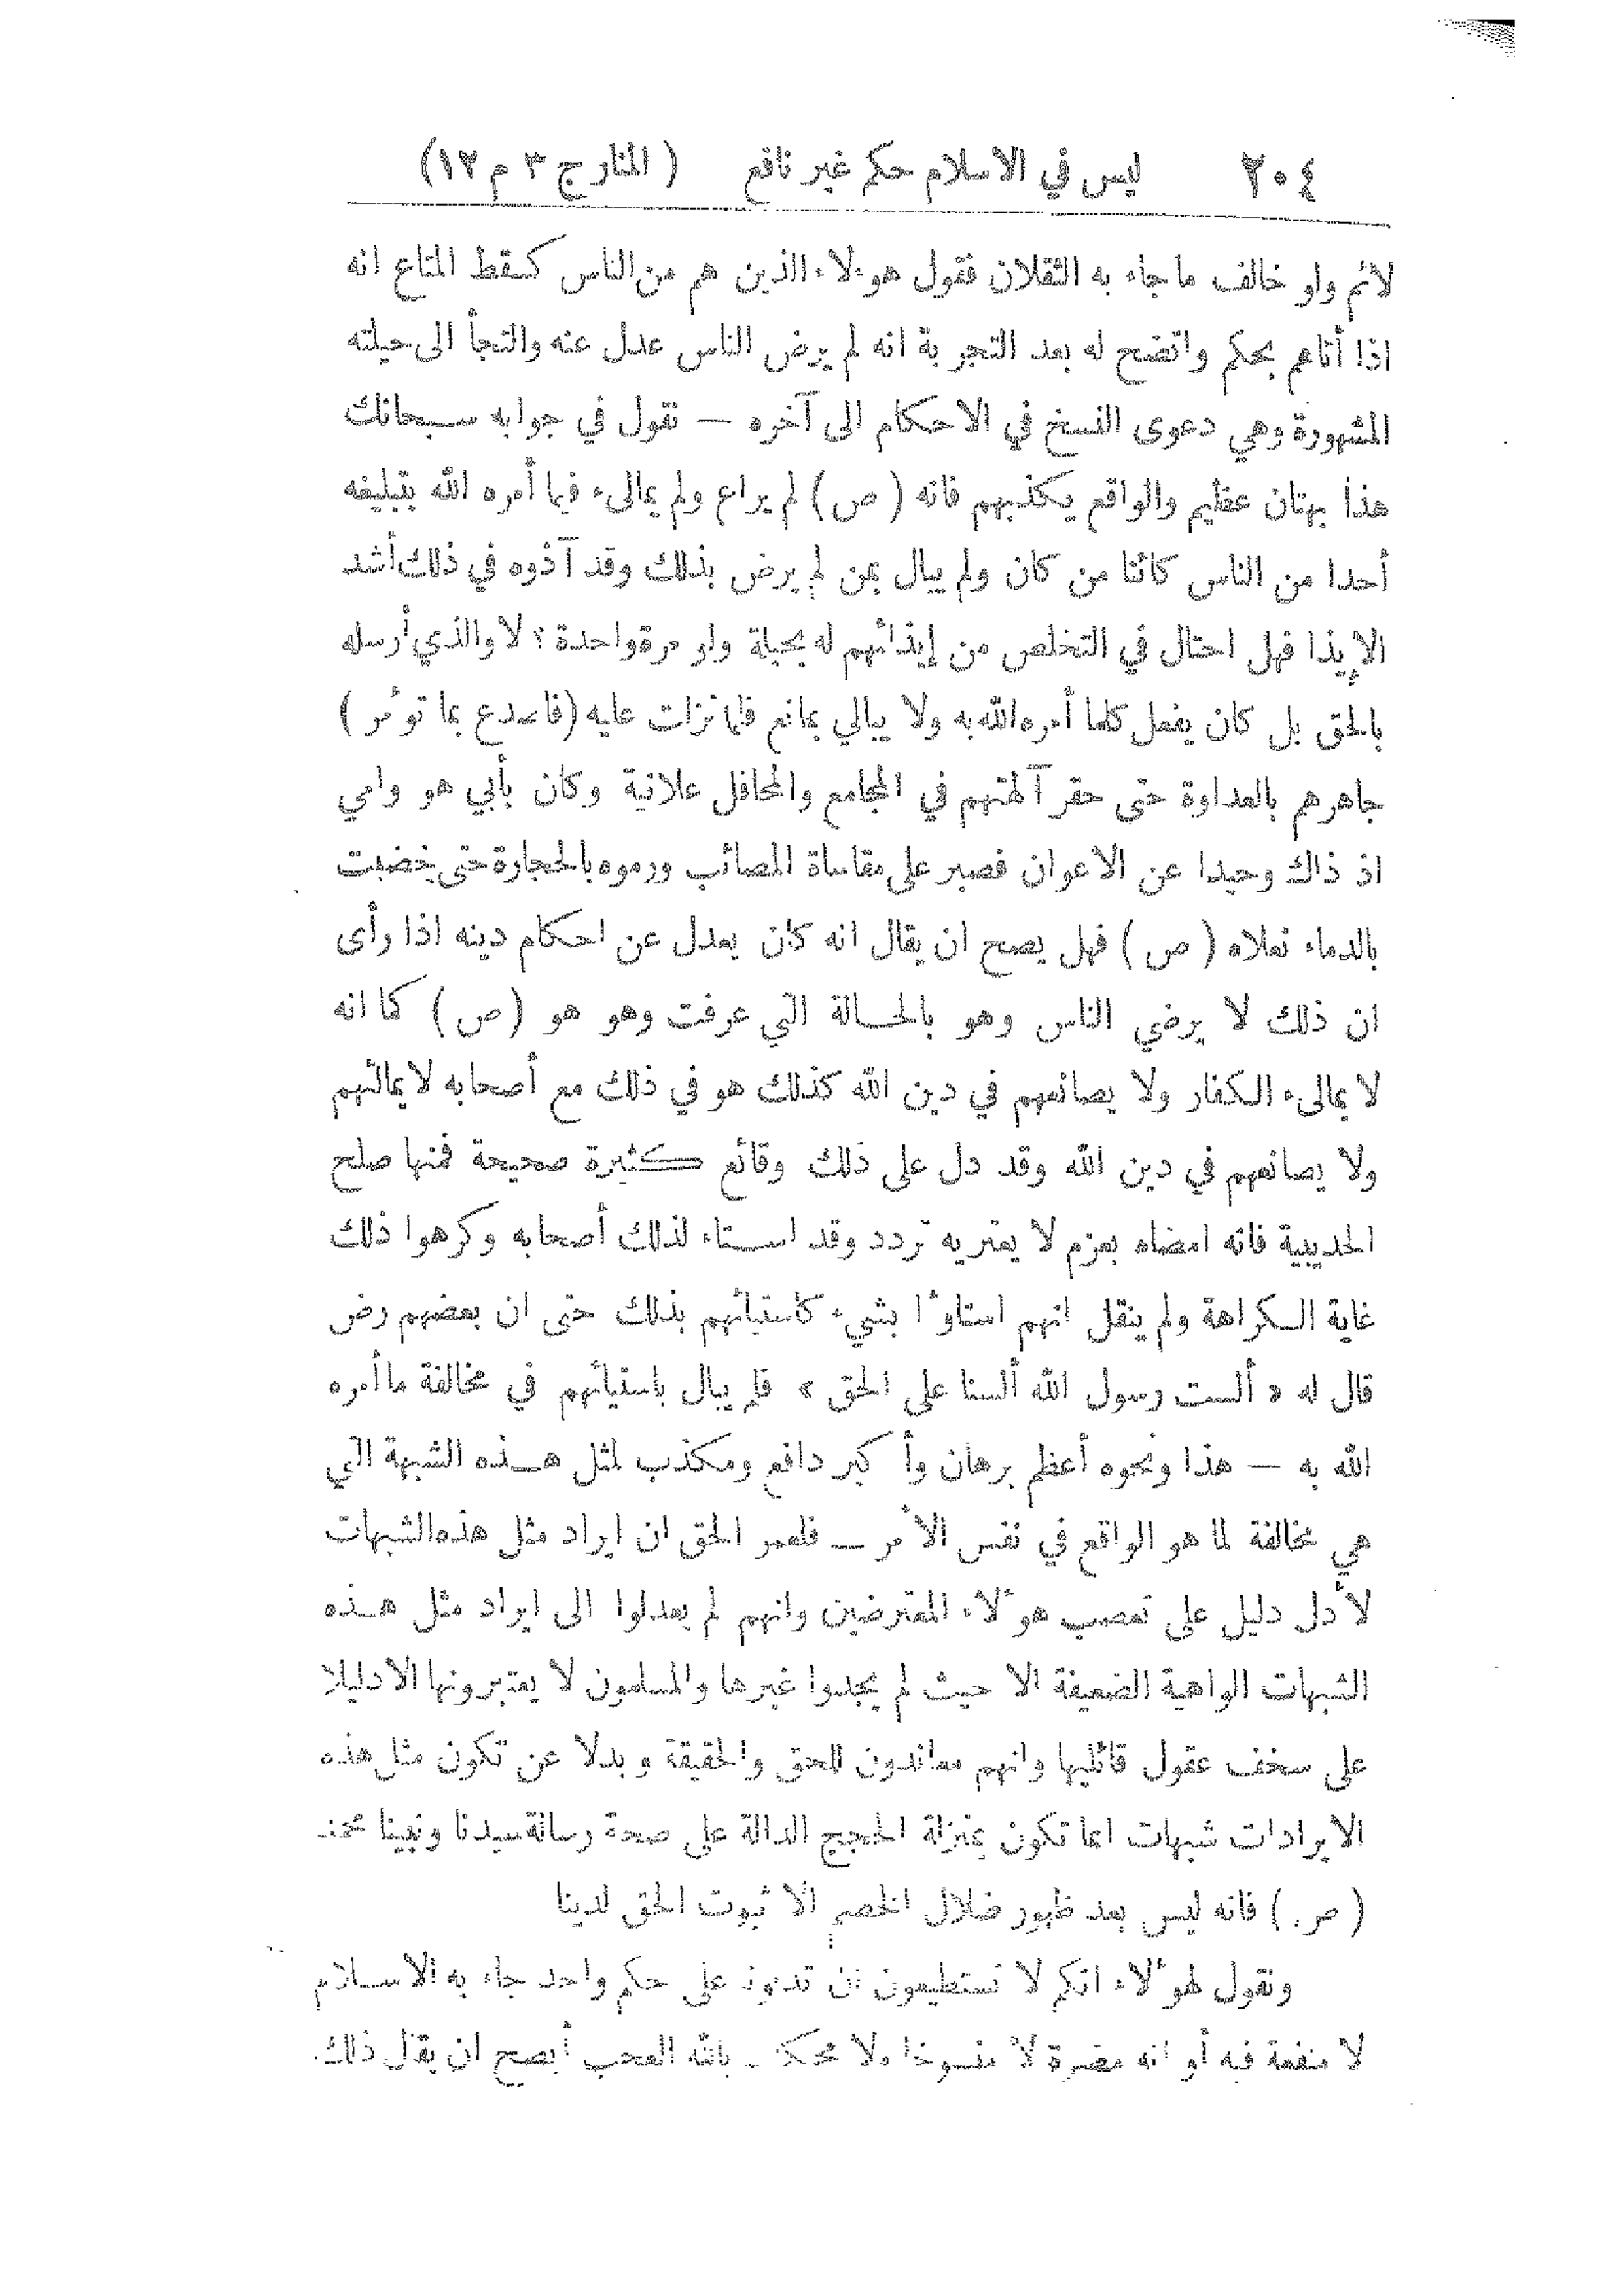 ٢٠٤ ليس في الاسلام حكم غير نافع (المنار ج ٣ م ١٢)
لائم ولو خالف ما جاء به الثقلان فقول هؤلاء الذين هم من الناس كسقط المتاع انه
اذا أتاهم بحكم واتضح له بعد التجربة انه لم يرض الناس عدل عنه والتجأ الى حيلته
المشهورة وهي دعوى النسخ في الاحكام الى آخره — نقول في جوابه سبحانك
هذا بهتان عظيم والواقع يكذبهم فانه (ص) لم يراع ولم يمالىء فيما أمره الله بتبليغه
أحدا من الناس كائنا من كان ولم يبال بمن لم يرض بذلك وقد آذوه في ذلك أشد
الإيذا فهل احتال في التخلص من إيذائهم له بحيلة ولو مرة واحدة ؟ لا والذي أرسله
بالحق بل كان يفعل كلما أمره الله به ولا يبالي بمانع فلما نزلت عليه (فاصدع بما تؤمر)
جاهرهم بالعداوة حتى حقر آلهتهم في المجامع والمحافل علانية وكان بأبي هو وامي
اذ ذاك وحيدا عن الاعوان فصبر على مقاساة المصائب ورموه بالحجارة حتى خضبت
بالدماء نعلاه (ص) فهل يصح ان يقال انه كان يعدل عن احكام دينه اذا رأى
ان ذلك لا يرضي الناس وهو بالحالة التي عرفت وهو هو (ص) كما انه
لا يمالىء الكفار ولا يصانعهم في دين الله كذلك هو في ذلك مع أصحابه لا يمالئهم
ولا يصانعهم في دين الله وقد دل على ذلك وقائع كثيرة صحيحة فمنها صلح
الحديبية فانه امضاه بعزم لا يعتريه تردد وقد استاء لذلك أصحابه وكرهوا ذلك
غاية الكراهة ولم ينقل انهم استاؤا بشيء كاستيائهم بذلك حتى ان بعضهم رض
قال له « ألست رسول الله ألسنا على الحق » فلم يبال باستيائهم في مخالفة ما أمره
الله به — هذا ونحوه أعظم برهان وأكبر دافع ومكذب لمثل هذه الشبهة التي
هي مخالفة لما هو الواقع في نفس الأمر — فلعمر الحق ان ايراد مثل هذه الشبهات
لأدل دليل على تعصب هؤلاء المعترضين وانهم لم يعدلوا الى ايراد مثل هذه
الشبهات الواهية الضعيفة الا حيث لم يجدوا غيرها والمسلمون لا يعتبرونها الا دليلا
على سخف عقول قائليها وانهم معاندون للحق والحقيقة وبدلا عن تكون مثل هذه
الايرادات شبهات انما تكون بمنزلة الحجج الدالة على صحة رسالة سيدنا ونبينا محمد
(ص) فانه ليس بعد ظهور ضلال الخصم الا ثبوت الحق لدينا
ونقول لهؤلاء انكم لا تستطيعون ان على حكم واحد جاء به الاسلام
لا منفعة فيه أو انه مضرة لا منسوخا ولا بالله العجب أيصح ان يقال ذلك